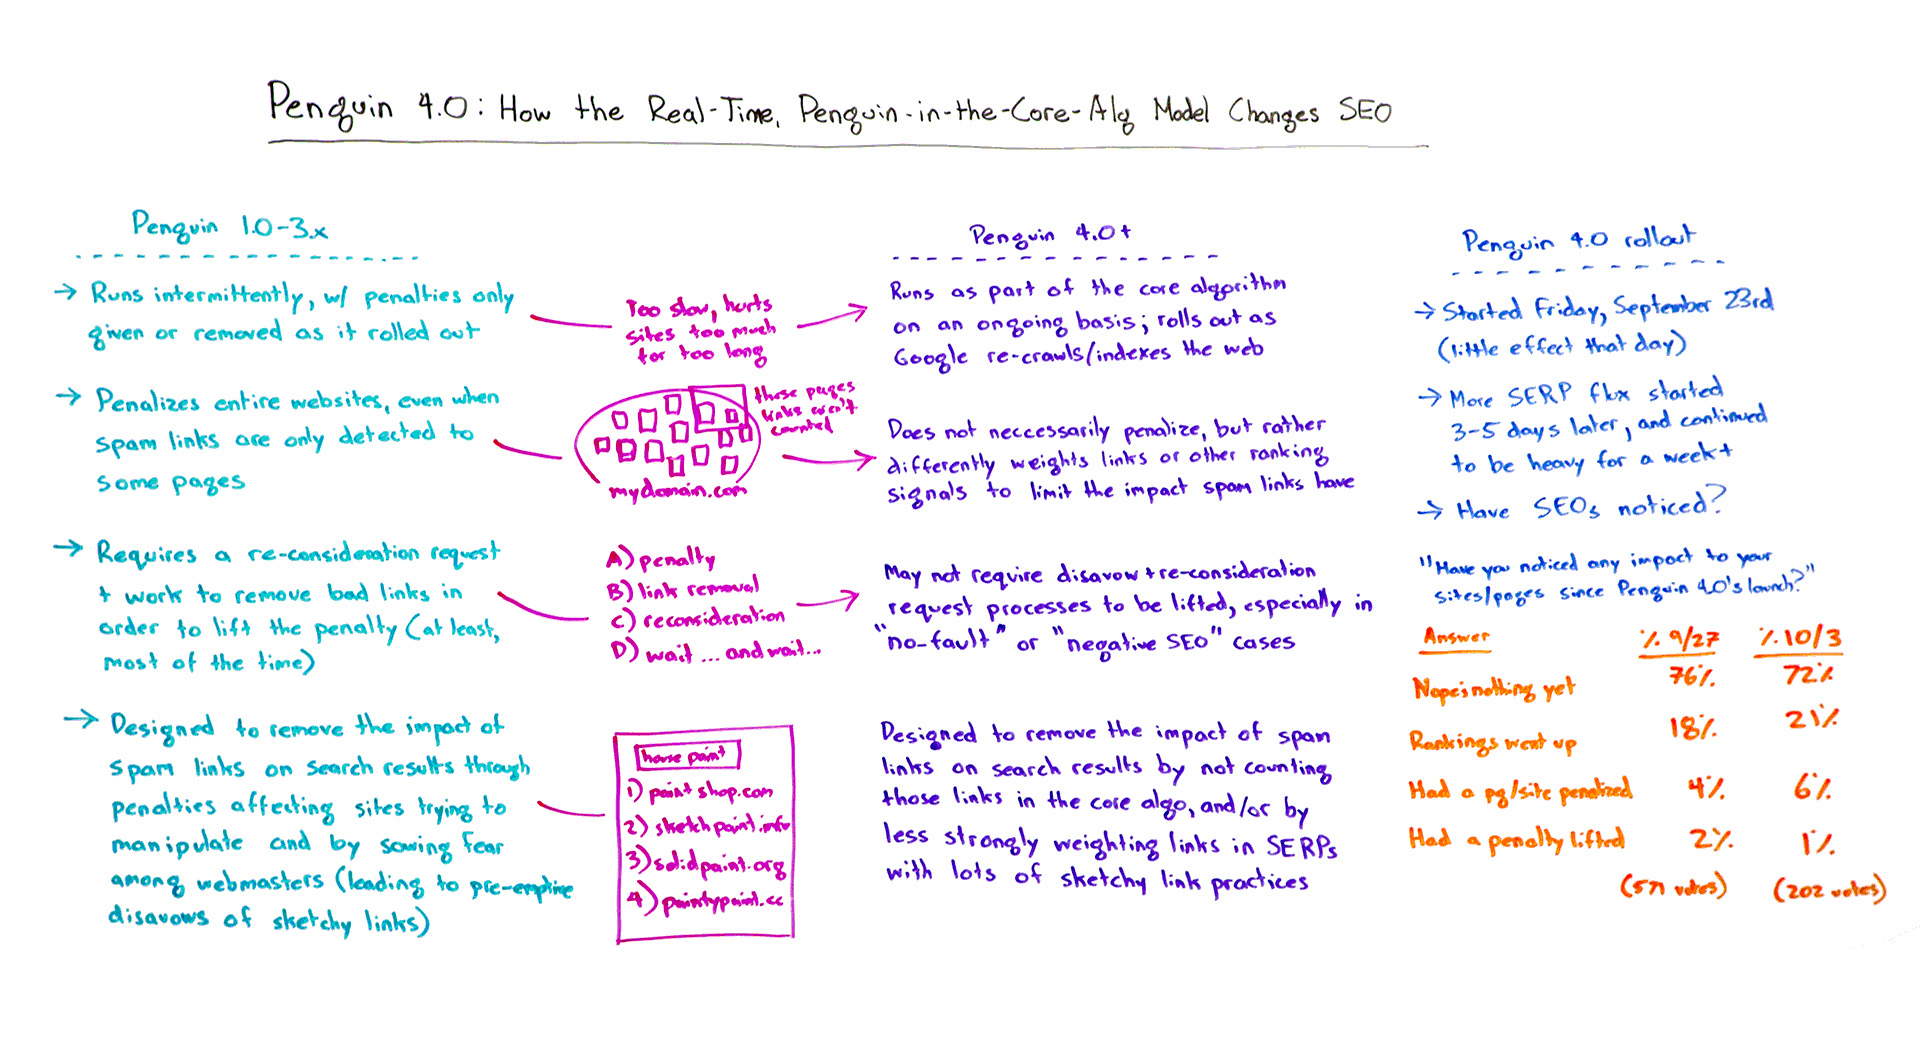 Penguin 4.0: How the Real-Time, Penguin-in-the-Core-Alg Model Changes SEO
Penguin 1.0-3.x
→ Runs intermittently, w/ penalties only
given or removed as it rolled out
→ Penalizes entire websites, even when
spam links are only detected to
some pages
→ Requires a re-consideration request
+ work to remove bad links in
order to lift the penalty (at least,
most of the time)
→ Designed to remove the impact of
spam links on search results through
penalties affecting sites trying to
manipulate and by sowing fear
among webmasters (leading to pre-emptive
disavows of sketchy links)
Too slow, hurts
sites too much
for too long
these pages
links aren't
counted
mydomain.com
A) penalty
B) link removal
C) reconsideration
D) wait... and wait...
house paint
1) paintshop.com
2) sketchpaint.info
3) solidpaint.org
4) paintypaint.cc
Penguin 4.0+
Runs as part of the core algorithm
on an ongoing basis; rolls out as
Google re-crawls/indexes the web
Does not neccessarily penalize, but rather
differently weights links or other ranking
signals to limit the impact spam links have
May not require disavow + re-consideration
request processes to be lifted, especially in
"no-fault" or "negative SEO" cases
Designed to remove the impact of spam
links on search results by not counting
those links in the core algo, and/or by
less strongly weighting links in SERPs
with lots of sketchy link practices
Penguin 4.0 rollout
→ Started Friday, September 23rd
(little effect that day)
→ More SERP flux started
3-5 days later, and continued
to be heavy for a week+
→ Have SEOs noticed?
"Have you noticed any impact to your
sites/pages since Penguin 4.0's launch?"
Answer % 9/27 % 10/3
Nope; nothing yet 76% 72%
Rankings went up 18% 21%
Had a pg/site penalized 4% 6%
Had a penalty lifted 2% 1%
(571 votes) (202 votes)